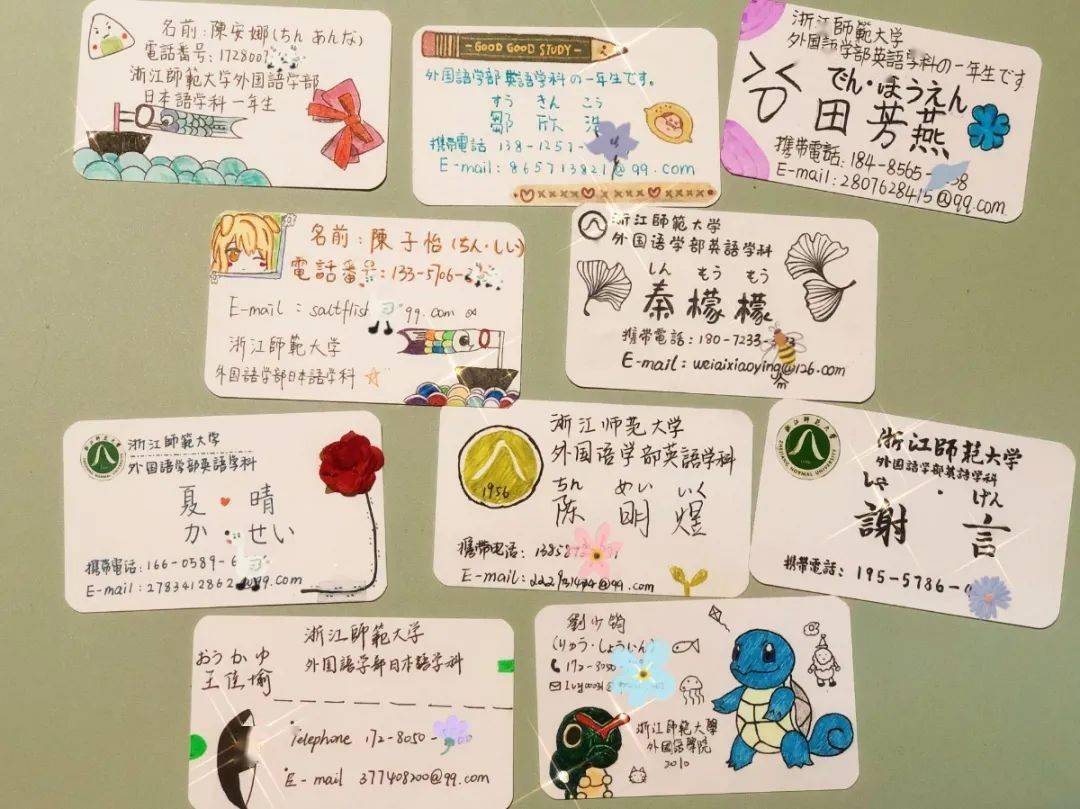 名前:陳安娜(ちん あんな)
電話番号:1728007
浙江師範大学外国語学部
日本語学科一年生
-GOOD GOOD STUDY-
外国語学部英語学科の一年生です。
すう きん こう
鄒 欣 浩
携帯電話 138-1257-
E-mail:865713821@qq.com
浙江師範大学
外国語学部英語学科の一年生です
でん・ほうえん
田芳燕
携帯電話:184-8565- 8
E-mail:2807628415@qq.com
名前:陳子怡(ちん・しい)
電話番号:133-5706-2
E-mail:saltfish qq.com
浙江師範大学
外国語学部日本語学科
浙江師範大学
外国语学部英語学科
しん もう もう
秦檬檬
携帯電話:180-7233-
E-mail:weiaixiaoying@126.com
浙江師範大学
外国语学部英語学科
夏 晴
か せい
携帯電话:166-0589-6
E-mail:2783412862@qq.com
1956
浙江师范大学
外国语学部英語学科
ちん めい いく
陈 明 煜
携帯电话:13858
E-mail: @qq.com
ZHEJIANG NORMAL UNIVERSITY
浙江师範大学
外国語学部英語学科
しゃ・げん
謝 言
携帯電話:195-5786-
おうかゆ
王佳愉
浙江師範大学
外国語学部日本語学科
Telephone 172-8050- 00
E-mail 377408200@qq.com
劉少筠
(りゅう・しょういん)
172-8050
浙江師範大學
外國語學院
2010